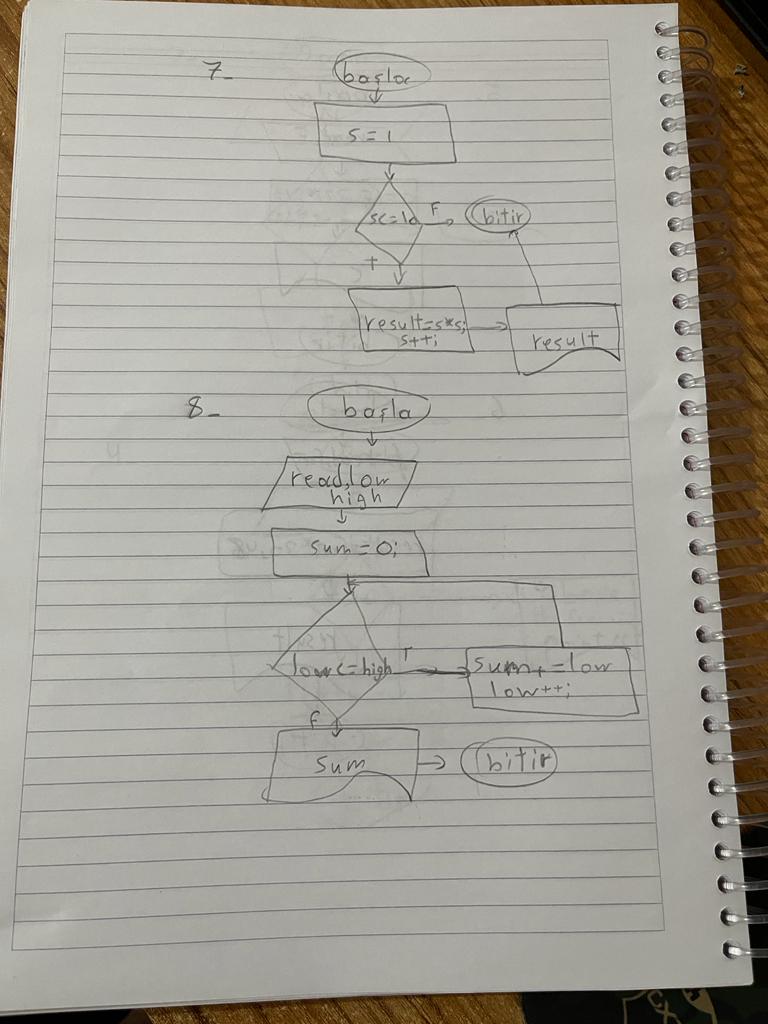 7-
başla
s=1
s<=10
F
bitir
T
result=s*s;
s++;
result
8-
başla
read,low
high
sum=0;
low<=high
T
sum+=low
low++;
F
sum
bitir